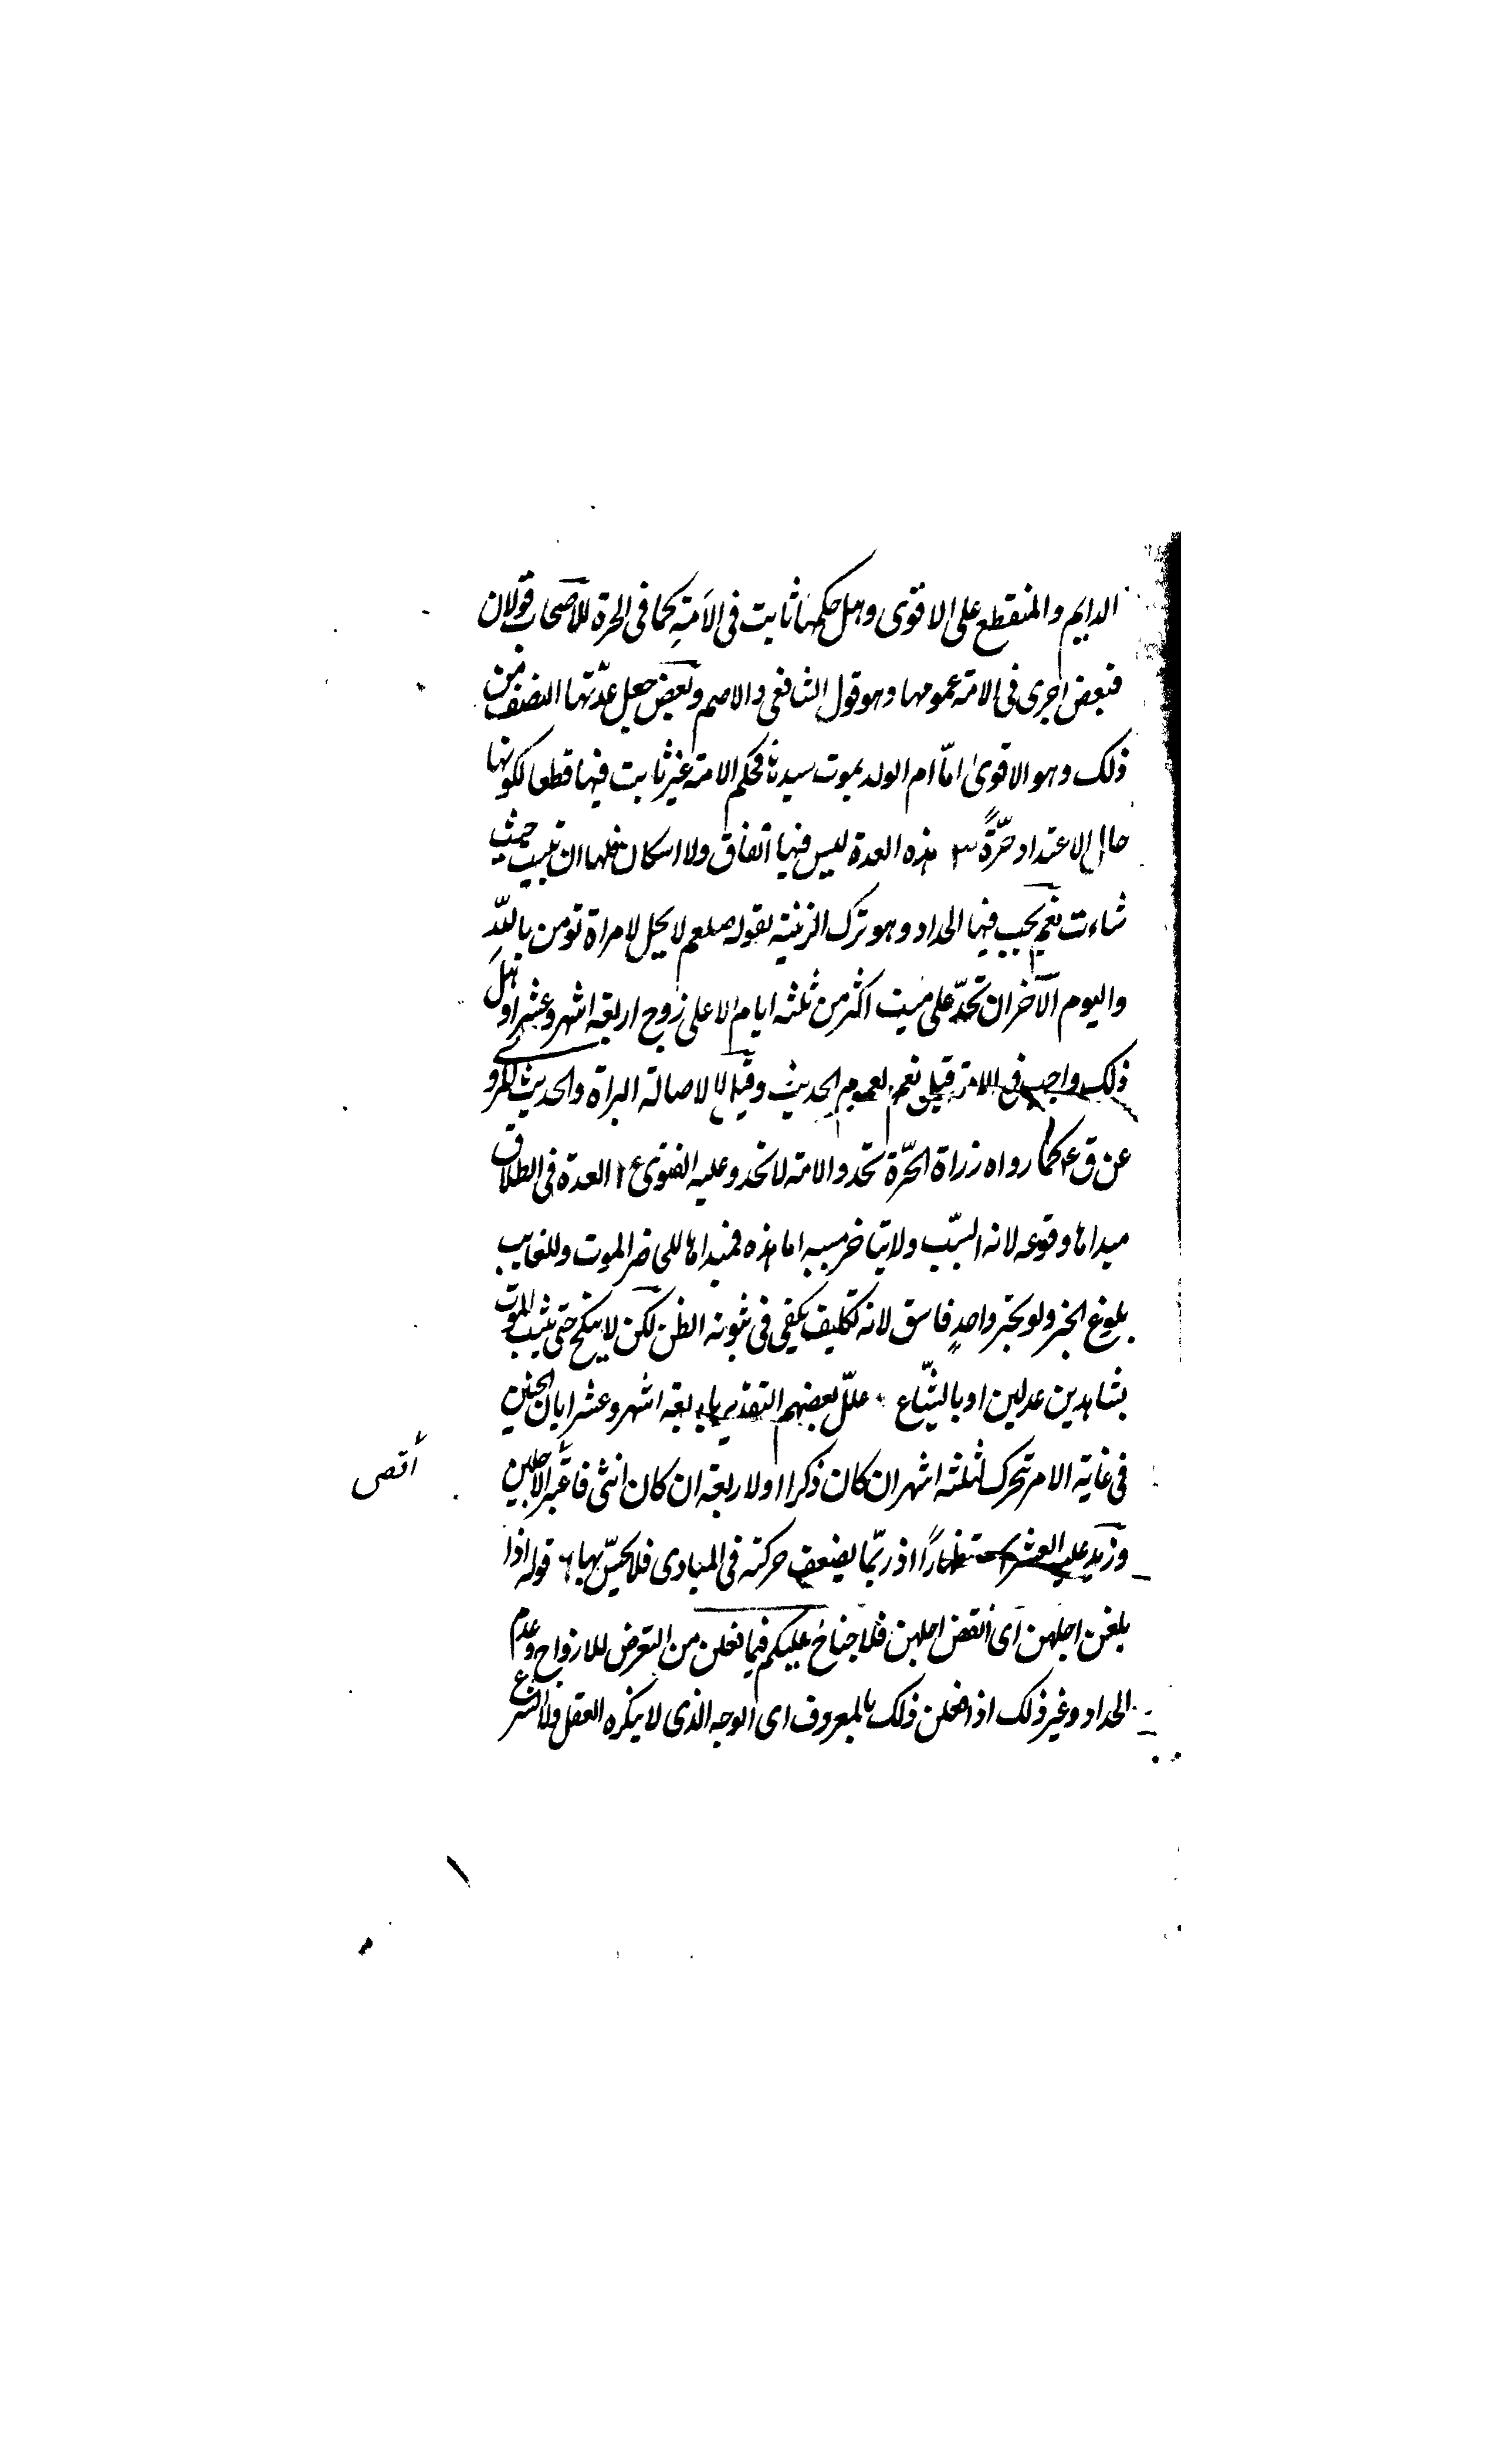 الدايم والمنقطع على الاقوى وهل حكمها ثابت فى الاَمَةِ كما فى الحرة للاصحاب قولان
فبعض اجرى فى الامة عمومها وهو قول الشافعى والاصم وبعض جعل عدّتها النصف من
ذلك وهو الاقوىٰ امّا ام الولد بموت سيدها فحكم الامة غير ثابت فيها قطعا لكونها
حال الاعتداد حرّةً ٣ هذه العدة ليس فيها اتفاق ولا اسكان فلها ان تبيت حيث
شاءت نعم يجب فيها الحداد وهو ترك الزينة لقوله صلعم لا يحل لامراة تومن باللّه
واليوم الآخر ان تحدّ على ميت اكثر من ثلثه ايام الا على زوج اربعة اشهر وعشرا وهل
ذلك واجب فى الامة قيل نعم لعموم الحديث وقيل لا لاصالة البراة والحديث المرو
عن ق ع كما رواه زراة الحرّة تحد والامة لا تحد وعليه الفتوى ٤ العدة فى الطلاق
مبداها وقوعه لانه السّبب ولا يتاخر مسببه اما هذه فمبداها للحاضر الموت وللغايب
بلوغ الخبر ولو بخبر واحدٍ فاسق لانه تكليف يكفى فى ثبوته الظن لكن لا ينكح حتى يثبت الموت
بشاهدين عدلين او بالشّياع ٥ علّل بعضهم التقدير باربعة اشهر وعشرا بان الجنين
فى غاية الامر تتحرك لثلثة اشهر ان كان ذكرا اولاربعة ان كان انثى فاعتُبر الاجلين
أقصى
وزيد عليه العشر استظهارًا اذ ربّما يضعف حركته فى المبادى فلا يحسّ بها ٦ قوله اذا
بلغن اجلهن اى انقض اجلهن فلا جناح عليكم فيما فعلن من التعرض للازواج وعدم
الحداد وغير ذلك اذا فعلن ذلك بالمعروف اى الوجه الذى لا ينكره العقل ولا الشرع